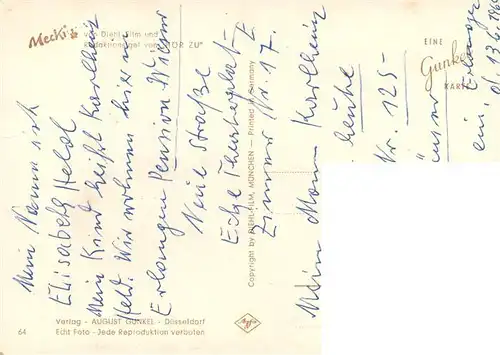 Mecki
von Diehl-Film und
Redaktionsigel von "HÖR ZU"
Mein Name ist
Elisabeth Held
Mein Kind heißt Karlheinz
Held. Wir wohnen hier in
Erlangen Pension Wiesner
Neue Straße
Ecke Theaterplatz
Zimmer Nr. 17.
Mein Mann Karlheinz
heute
Nr. 125-
unser
ein.
Erlangen
d. 13.6.
EINE
Gunkel
KARTE
Copyright by DIEHL-FILM, MÜNCHEN — Printed in Germany
64
Verlag - AUGUST GUNKEL - Düsseldorf
Echt Foto - Jede Reproduktion verboten
Agfa